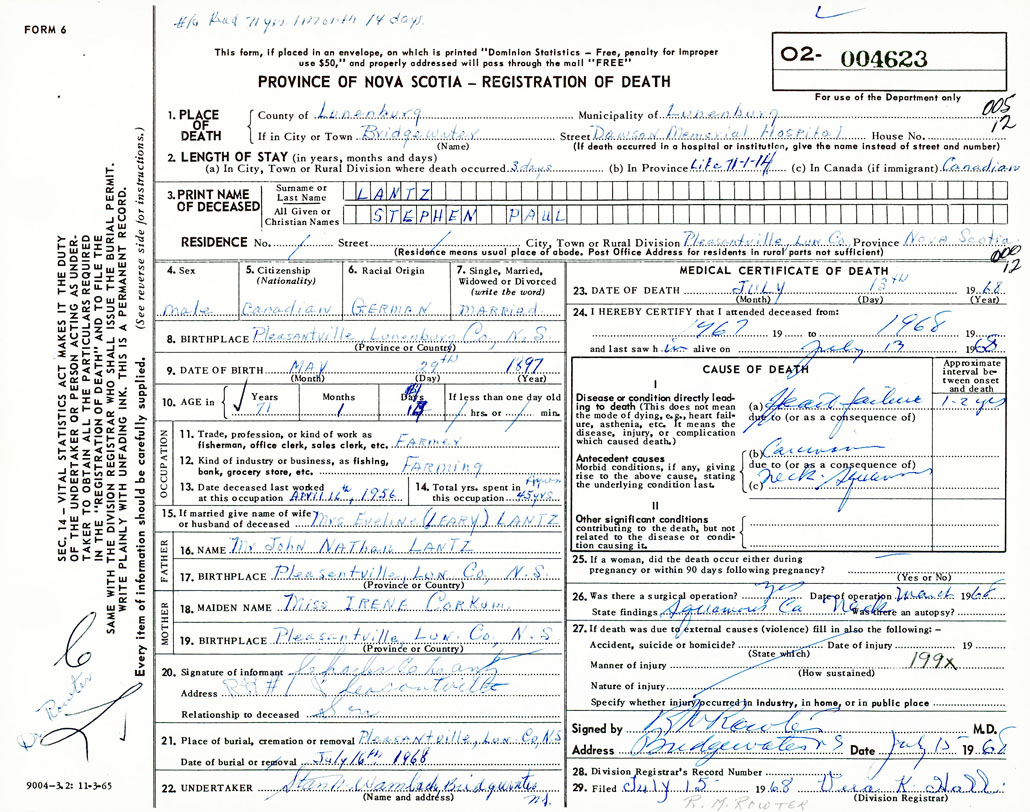 FORM 6
71 yrs. 1 month 14 days.
This form, if placed in an envelope, on which is printed "Dominion Statistics – Free, penalty for improper
use $50," and properly addressed will pass through the mail "FREE"
PROVINCE OF NOVA SCOTIA – REGISTRATION OF DEATH
02- 004623
For use of the Department only
005
12
1. PLACE OF DEATH
County of Lunenburg Municipality of Lunenburg
If in City or Town Bridgewater Street Dawson Memorial Hospital House No.
(Name) (If death occurred in a hospital or institution, give the name instead of street and number)
2. LENGTH OF STAY (in years, months and days)
(a) In City, Town or Rural Division where death occurred 3 days (b) In Province Life 71-1-14 (c) In Canada (if immigrant) Canadian
3. PRINT NAME OF DECEASED
Surname or Last Name LANTZ
All Given or Christian Names STEPHEN PAUL
RESIDENCE No. / Street / City, Town or Rural Division Pleasantville, Lun Co, Province Nova Scotia
(Residence means usual place of abode. Post Office Address for residents in rural parts not sufficient)
000
12
4. Sex
male
5. Citizenship
(Nationality)
Canadian
6. Racial Origin
GERMAN
7. Single, Married,
Widowed or Divorced
(write the word)
MARRIED.
8. BIRTHPLACE Pleasantville, Lunenburg Co, N.S.
(Province or Country)
9. DATE OF BIRTH MAY 29th 1897
(Month) (Day) (Year)
10. AGE in
Years Months Days If less than one day old
71 1 / hrs. or / min.
OCCUPATION
11. Trade, profession, or kind of work as
fisherman, office clerk, sales clerk, etc. Farmer
12. Kind of industry or business, as fishing,
bank, grocery store, etc. FARMING
13. Date deceased last worked
at this occupation April 16th, 1956.
14. Total yrs. spent in
this occupation 45 yrs.
15. If married give name of wife
or husband of deceased Mrs Eveline (LEARY) LANTZ
FATHER
16. NAME Mr John Nathan LANTZ
17. BIRTHPLACE Pleasantville, Lun. Co, N.S.
(Province or Country)
MOTHER
18. MAIDEN NAME Miss IRENE Corkum.
19. BIRTHPLACE Pleasantville, Lun. Co, N.S
(Province or Country)
20. Signature of informant
Address RR #1 Pleasantville
Relationship to deceased Son
21. Place of burial, cremation or removal Pleasantville, Lun. Co, N.S
Date of burial or removal July 16th 1968
22. UNDERTAKER Bridgewater
(Name and address) N.S.
MEDICAL CERTIFICATE OF DEATH
23. DATE OF DEATH JULY 13th 1968
(Month) (Day) (Year)
24. I HEREBY CERTIFY that I attended deceased from:
1967 19 to 1968 19
and last saw him alive on July 13 1968
CAUSE OF DEATH
Approximate
interval between
onset
and death
I
Disease or condition directly leading
to death (This does not mean
the mode of dying, e.g., heart failure,
asthenia, etc. It means the
disease, injury, or complication
which caused death.)
(a) Heart failure 1-2 yrs
due to (or as a consequence of)
Antecedent causes
Morbid conditions, if any, giving
rise to the above cause, stating
the underlying condition last.
(b)
due to (or as a consequence of)
(c) neck
II
Other significant conditions
contributing to the death, but not
related to the disease or condition
causing it.
25. If a woman, did the death occur either during
pregnancy or within 90 days following pregnancy?
(Yes or No)
26. Was there a surgical operation? yes Date of operation March 1968
State findings Squamous Ca Neck Was there an autopsy?
27. If death was due to external causes (violence) fill in also the following: –
Accident, suicide or homicide? Date of injury 19
(State which)
Manner of injury 199x
(How sustained)
Nature of injury
Specify whether injury occurred in industry, in home, or in public place
Signed by M.D.
Address Bridgewater NS Date July 15 1968
28. Division Registrar's Record Number
29. Filed July 15 1968 Vera K. Hall
(Division Registrar)
R. M. ROWTER
SEC. 14 – VITAL STATISTICS ACT MAKES IT THE DUTY
OF THE UNDERTAKER OR PERSON ACTING AS UNDER-
TAKER TO OBTAIN ALL THE PARTICULARS REQUIRED
IN THE "REGISTRATION OF DEATH" AND TO FILE THE
SAME WITH THE DIVISION REGISTRAR WHO SHALL ISSUE THE BURIAL PERMIT.
WRITE PLAINLY WITH UNFADING INK. THIS IS A PERMANENT RECORD.
Every item of information should be carefully supplied. (See reverse side for instructions.)
Dr. Rowter
9004-3.2: 11-3-65